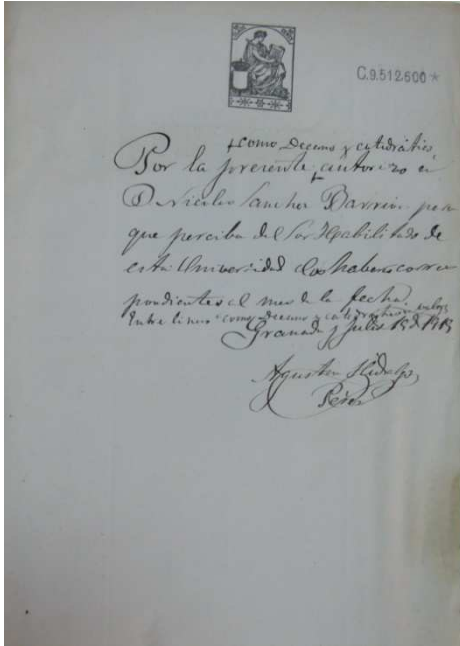 C.9.512.600*
como Decano y catedrático
Por la presente autorizo á
D. Nicolas Sanchez Barrios para
que perciba del Sor Habilitado de
esta Universidad los haberes corres
pondientes al mes de la fecha
Entre lineas "como Decano y catedrático" valen
Granada y Julio 15 de 1913
Agustin Hidalgo
Perez